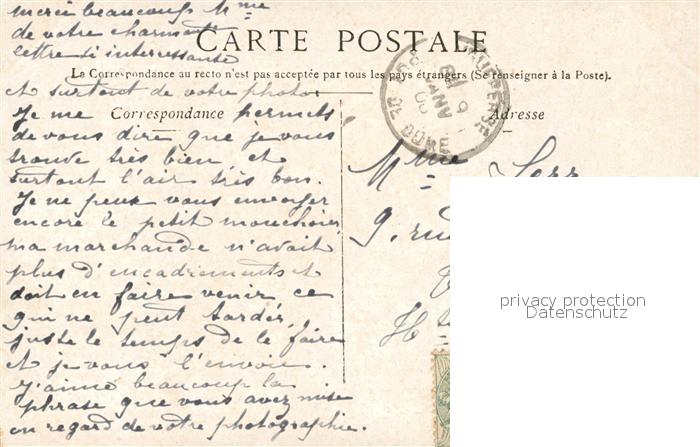 merci beaucoup Mme
de votre charmante
lettre si interressante
CARTE POSTALE
La Correspondance au recto n'est pas acceptée par tous les pays étrangers (Se renseigner à la Poste).
et surtout de votre photo
Je me permets
Correspondance
Adresse
de vous dire que je vous
trouve très bien, et
surtout l'air très bon.
Je ne peux vous envoyer
encore le petit mouchoir,
ma marchande n'avait
plus d'encadrements et
doit en faire venir, ce
qui ne peut tarder,
juste le temps de le faire
et je vous l'envoie.
J'aime beaucoup la
phrase que vous avez mise
en regard de votre photographie.
Mme
9, rue
Hte
PUY DE DOME
privacy protection
Datenschutz